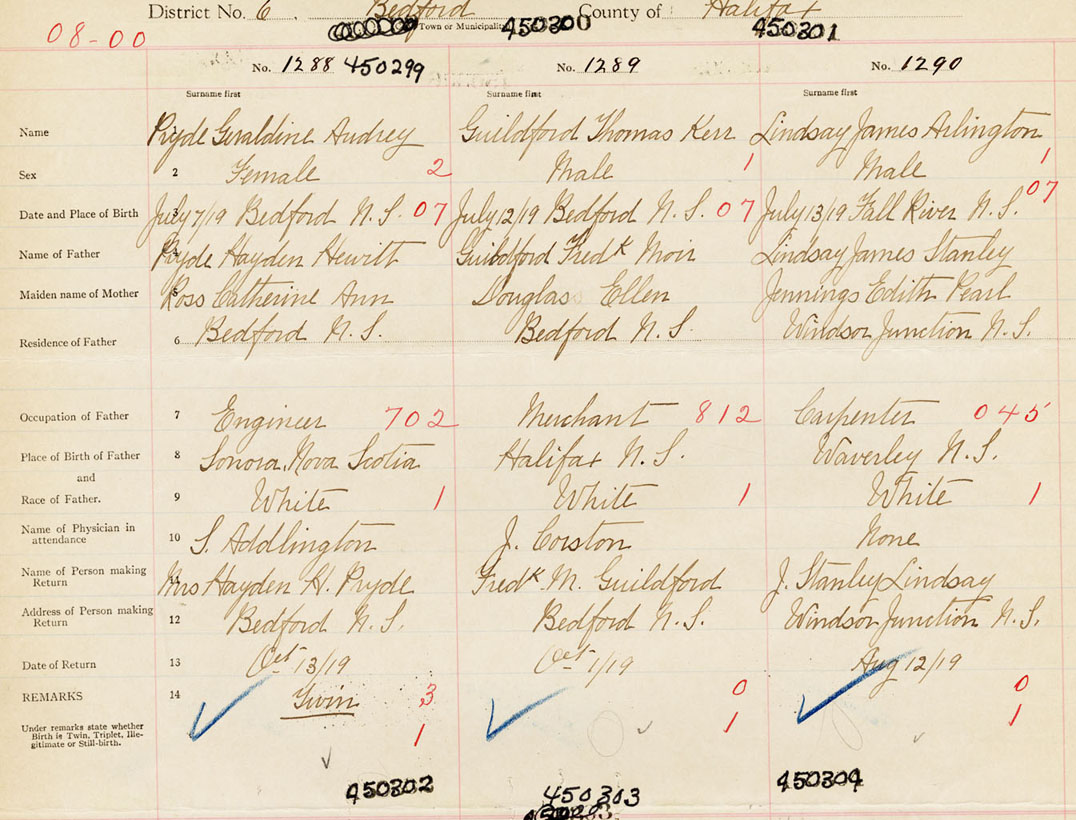 District No. 6 Bedford County of Halifax
Town or Municipality
450300 450301
08-00
No. 1288 450299 No. 1289 No. 1290
Surname first Surname first Surname first
Name Pryde Geraldine Audrey Guildford Thomas Kerr Lindsay James Arlington
Sex 2 Female 2 Male 1 Male 1
Date and Place of Birth 3 July 7/19 Bedford N.S. 07 July 12/19 Bedford N.S. 07 July 13/19 Fall River N.S. 07
Name of Father Pryde Hayden Hewitt Guildford Fredk Moir Lindsay James Stanley
Maiden name of Mother 5 Ross Catherine Ann Douglas Ellen Jennings Edith Pearl
Residence of Father 6 Bedford N.S. Bedford N.S. Windsor Junction N.S.
Occupation of Father 7 Engineer 702 Merchant 812 Carpenter 045
Place of Birth of Father 8 Sonora, Nova Scotia Halifax N.S. Waverley N.S.
and
Race of Father. 9 White 1 White 1 White 1
Name of Physician in
attendance 10 S. Addlington J. Corston None
Name of Person making
Return 11 Mrs Hayden H. Pryde Fredk. M. Guildford J. Stanley Lindsay
Address of Person making
Return 12 Bedford N.S. Bedford N.S. Windsor Junction N.S.
Date of Return 13 Oct 13/19 Oct 1/19 Aug 12/19
REMARKS 14 Twin 3 0 0
Under remarks state whether
Birth is Twin, Triplet, Ille-
gitimate or Still-birth. 1 1 1
450302 450303 450304